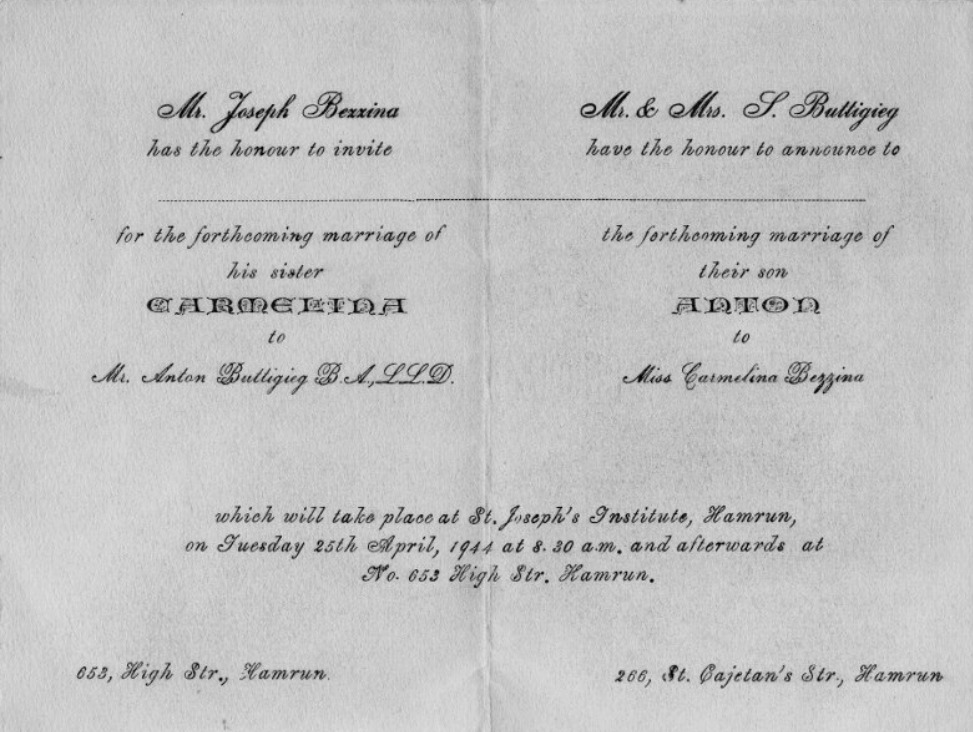 Mr. Joseph Bezzina
has the honour to invite
for the forthcoming marriage of
his sister
CARMELINA
to
Mr. Anton Buttigieg B.A., LL.D.
Mr. & Mrs. S. Buttigieg
have the honour to announce to
the forthcoming marriage of
their son
ANTON
to
Miss Carmelina Bezzina
which will take place at St. Joseph's Institute, Hamrun,
on Tuesday 25th April, 1944 at 8.30 a.m. and afterwards at
No. 653 High Str. Hamrun.
653, High Str., Hamrun.
266, St. Cajetan's Str., Hamrun